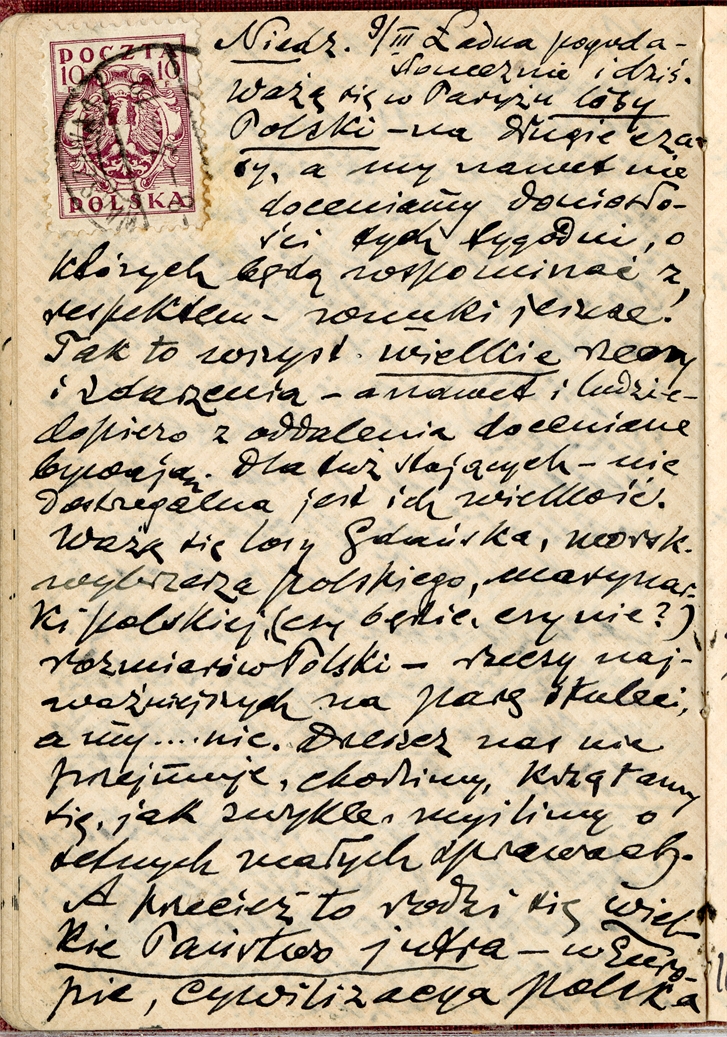 POCZTA
10 10
POLSKA
Niedz. 9/III Ładna pogoda -
słonecznie i dziś.
ważą się w Paryżu losy
Polski - na długie cza-
sy, a my nawet nie
doceniamy doniosło-
ści tych tygodni, o
których będą wspominać z
respektem - wnuki jeszcze.
Tak to wszyst. wielkie rzeczy
i zdarzenia - a nawet i ludzie -
dopiero z oddalenia doceniane
bywają. Dla tuż stojących - nie
dostrzegalna jest ich wielkość.
Ważą się losy Gdańska, morsk.
wybrzeża polskiego, marynar-
ki polskiej, (czy będzie, czy nie?)
rozmiarów Polski - rzeczy naj-
ważniejszych na parę stuleci,
a my.... nic. Dreszcz nas nie
przejmuje, chodzimy, krzątamy
się, jak zwykle, myślimy o
setnych małych sprawach.
A przecież to rodzi się wiel-
kie Państwo jutra - w Euro-
pie, cywilizacya polska